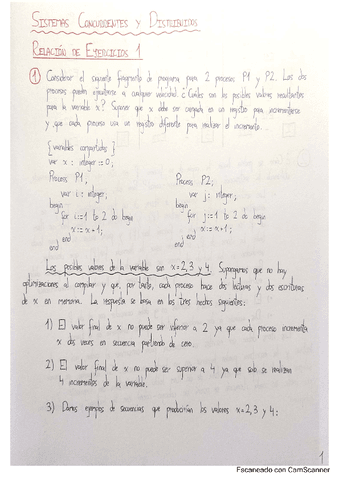 SISTEMAS CONCURRENTES Y DISTRIBUIDOS
RELACIÓN DE EJERCICIOS 1
1 Considerar el siguiente fragmento de programa para 2 procesos P1 y P2. Los dos
procesos pueden ejecutarse a cualquier velocidad. ¿Cuáles son los posibles valores resultantes
para la variable x? Suponer que x debe ser cargada en un registro para incrementarse
y que cada proceso usa un registro diferente para realizar el incremento.
{ variables compartidas }
var x : integer := 0;
Process P1, Process P2;
var i : integer; var j : integer;
begin begin
for i:=1 to 2 do begin for j:=1 to 2 do begin
x:=x+1; x:=x+1;
end end
end end
Los posibles valores de la variable son x=2,3 y 4. Supongamos que no hay
optimizaciones al compilar y que, por tanto, cada proceso hace dos lecturas y dos escrituras
de x en memoria. La respuesta se basa en los tres hechos siguientes:
1) El valor final de x no puede ser inferior a 2 ya que cada proceso incrementa
x dos veces en secuencia partiendo de cero.
2) El valor final de x no puede ser superior a 4 ya que solo se realizan
4 incrementos de la variable.
3) Damos ejemplos de secuencias que producirían los valores x=2,3 y 4:
1
Escaneado con CamScanner